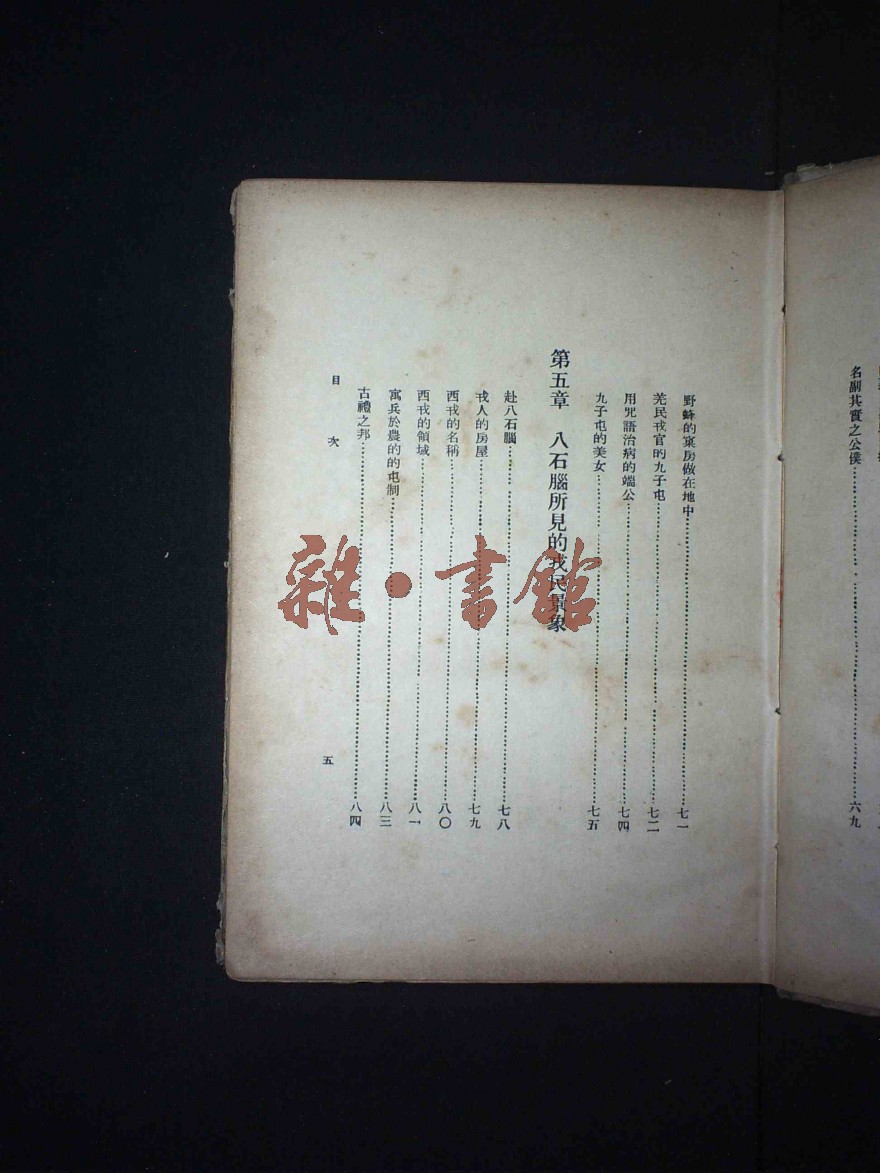 名副其實之公僕……六九
野蜂的窠房做在地中……七一
羌民戎官的九子屯……七二
用咒語治病的端公……七四
九子屯的美女……七五
第五章 八石腦所見的戎民景象
赴八石腦……七八
戎人的房屋……七九
西戎的名稱……八〇
西戎的領域……八一
寓兵於農的的屯制……八三
古禮之邦……八四
目次
五
雜·書館